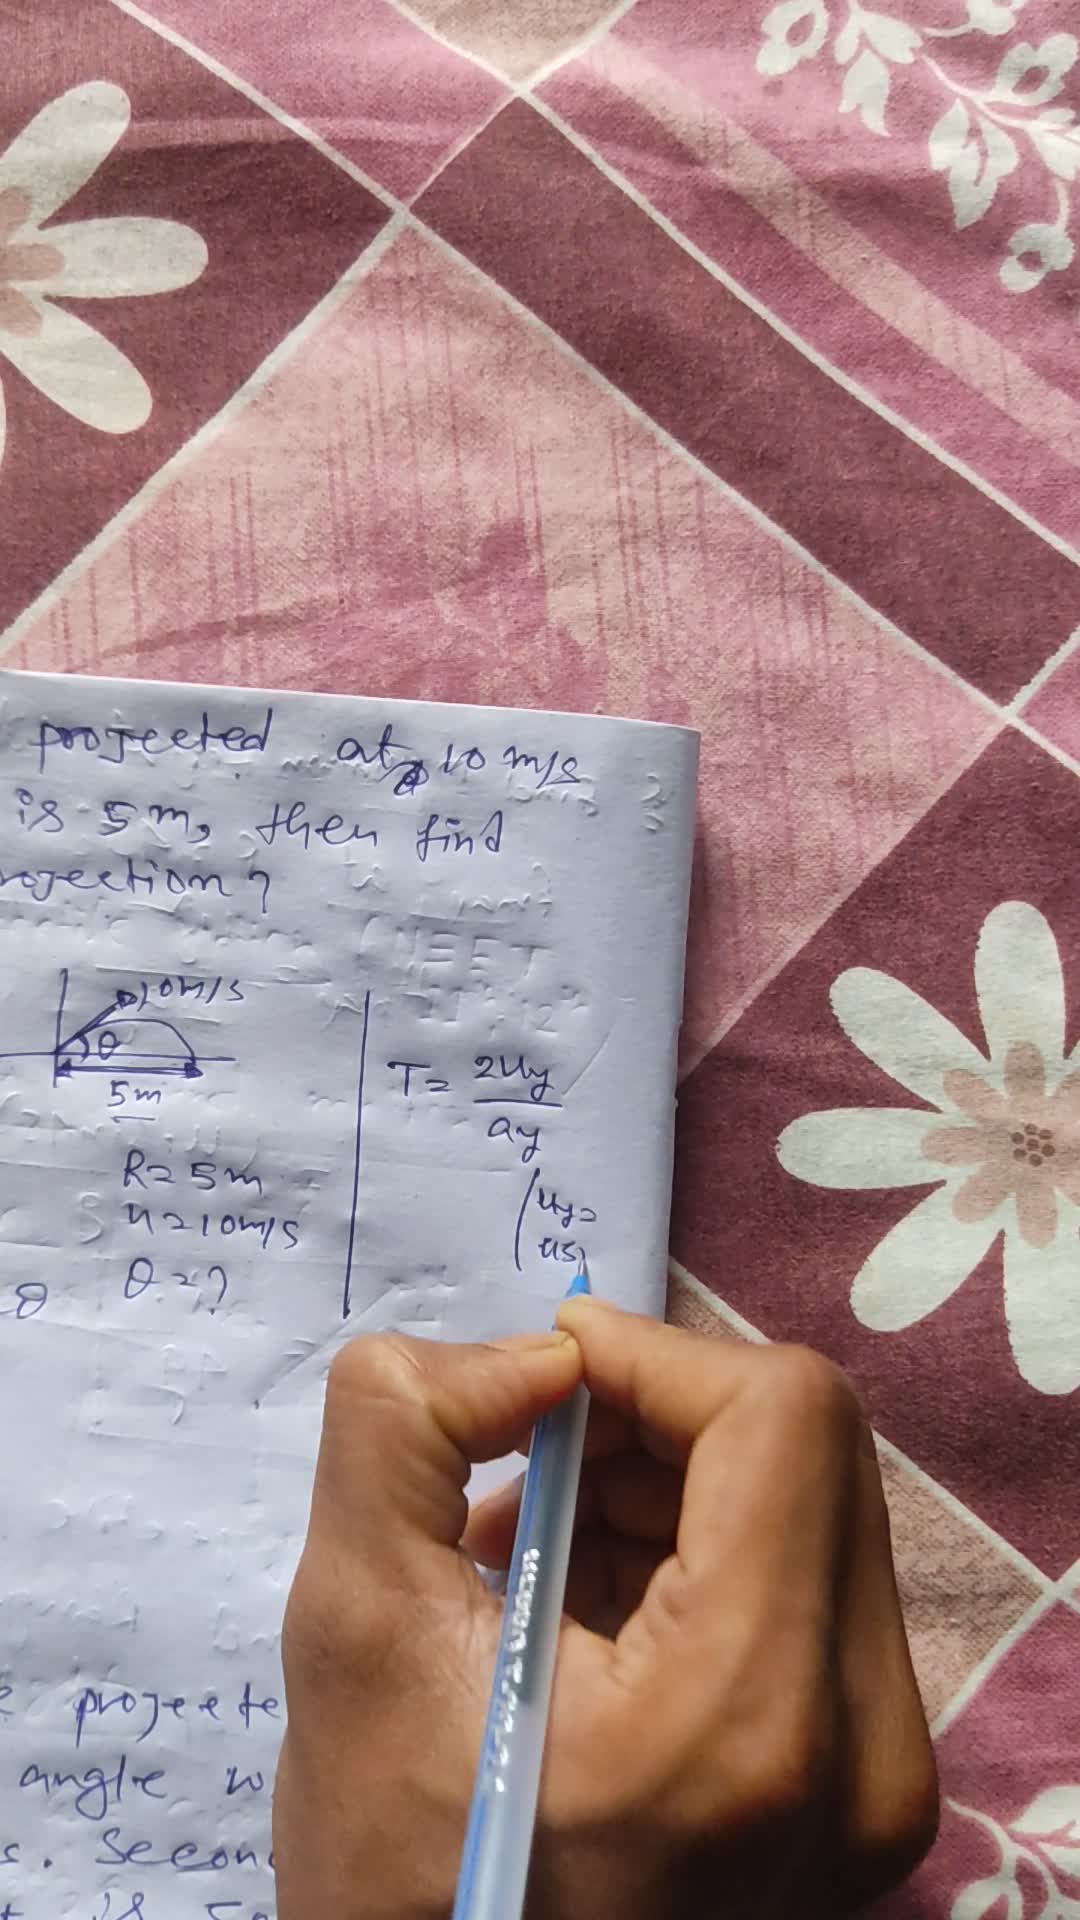 projected at 10 m/s
is 5m, then find
rojection?
10m/s
θ
5m
R=5m
u=10m/s
θ=?
θ
T= 2uy
ay
uy=
usi
projecte
angle w
s. Secon